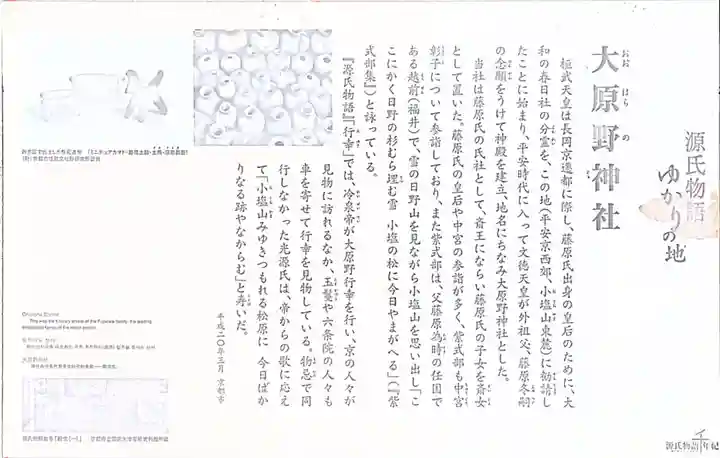 源氏物語
ゆかりの地
大原野神社
おお はら の
桓武天皇は長岡京遷都に際し、藤原氏出身の皇后のために、大
和の春日社の分霊を、この地(平安京西郊、小塩山東麓)に勧請し
たことに始まり、平安時代に入って文徳天皇が外祖父、藤原冬嗣
の念願をうけて神殿を建立、地名にちなみ大原野神社とした。
当社は藤原氏の氏社として、斎王にならい藤原氏の子女を斎女
として置いた。藤原氏の皇后や中宮の参詣が多く、紫式部も中宮
彰子について参詣しており、また紫式部は、父藤原為時の任国で
ある越前(福井)で、雪の日野山を見ながら小塩山を思い出し「こ
こにかく日野の杉むら埋む雪 小塩の松に今日やまがへる」(『紫
式部集』)と詠っている。
『源氏物語』「行幸」では、冷泉帝が大原野行幸を行い、京の人々が
見物に訪れるなか、玉鬘や六条院の人々も
車を寄せて行幸を見物している。物忌で同
行しなかった光源氏は、帝からの歌に応え
て「小塩山みゆきつもれる松原に 今日ばか
りなる跡やなからむ」と寿いだ。
平成二〇年三月 京都市
Oharano Shrine
This was the tutelary shrine of the Fujiwara family, the leading
源氏物語千年紀